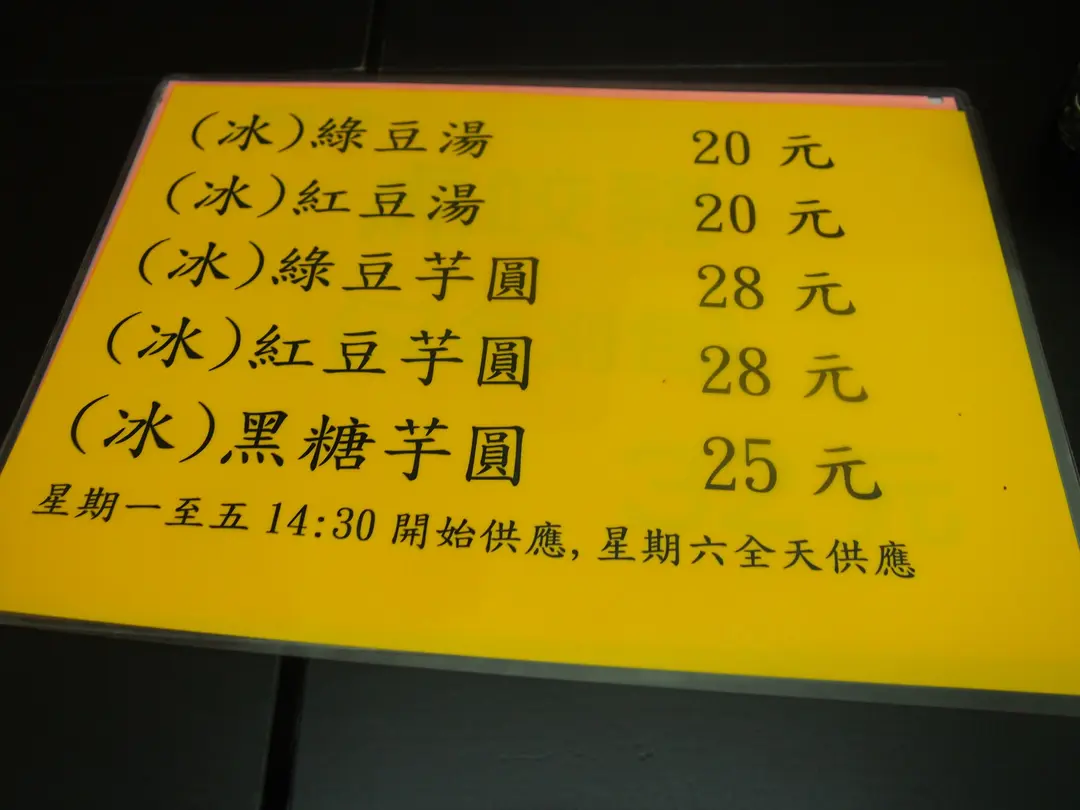 (冰)綠豆湯 20 元
(冰)紅豆湯 20 元
(冰)綠豆芋圓 28 元
(冰)紅豆芋圓 28 元
(冰)黑糖芋圓 25 元
星期一至五 14:30 開始供應, 星期六全天供應